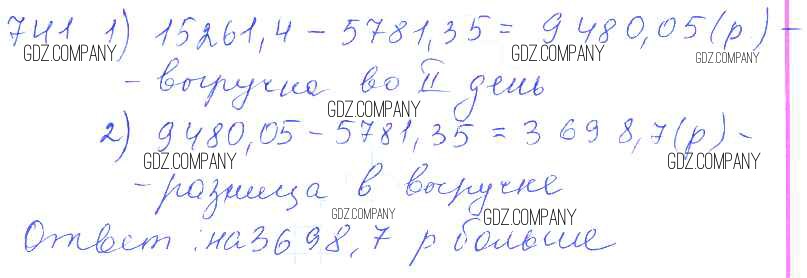 741 1) 15261,4 - 5781,35 = 9480,05(р) -
GDZ.COMPANY GDZ.COMPANY GDZ.COMPANY GDZ.COMPANY
- выручка во II день
GDZ.COMPANY
2) 9480,05 - 5781,35 = 3698,7(р) -
GDZ.COMPANY GDZ.COMPANY GDZ.COMPANY
- разница в выручке
GDZ.COMPANY GDZ.COMPANY
Ответ: на 3698,7 р больше